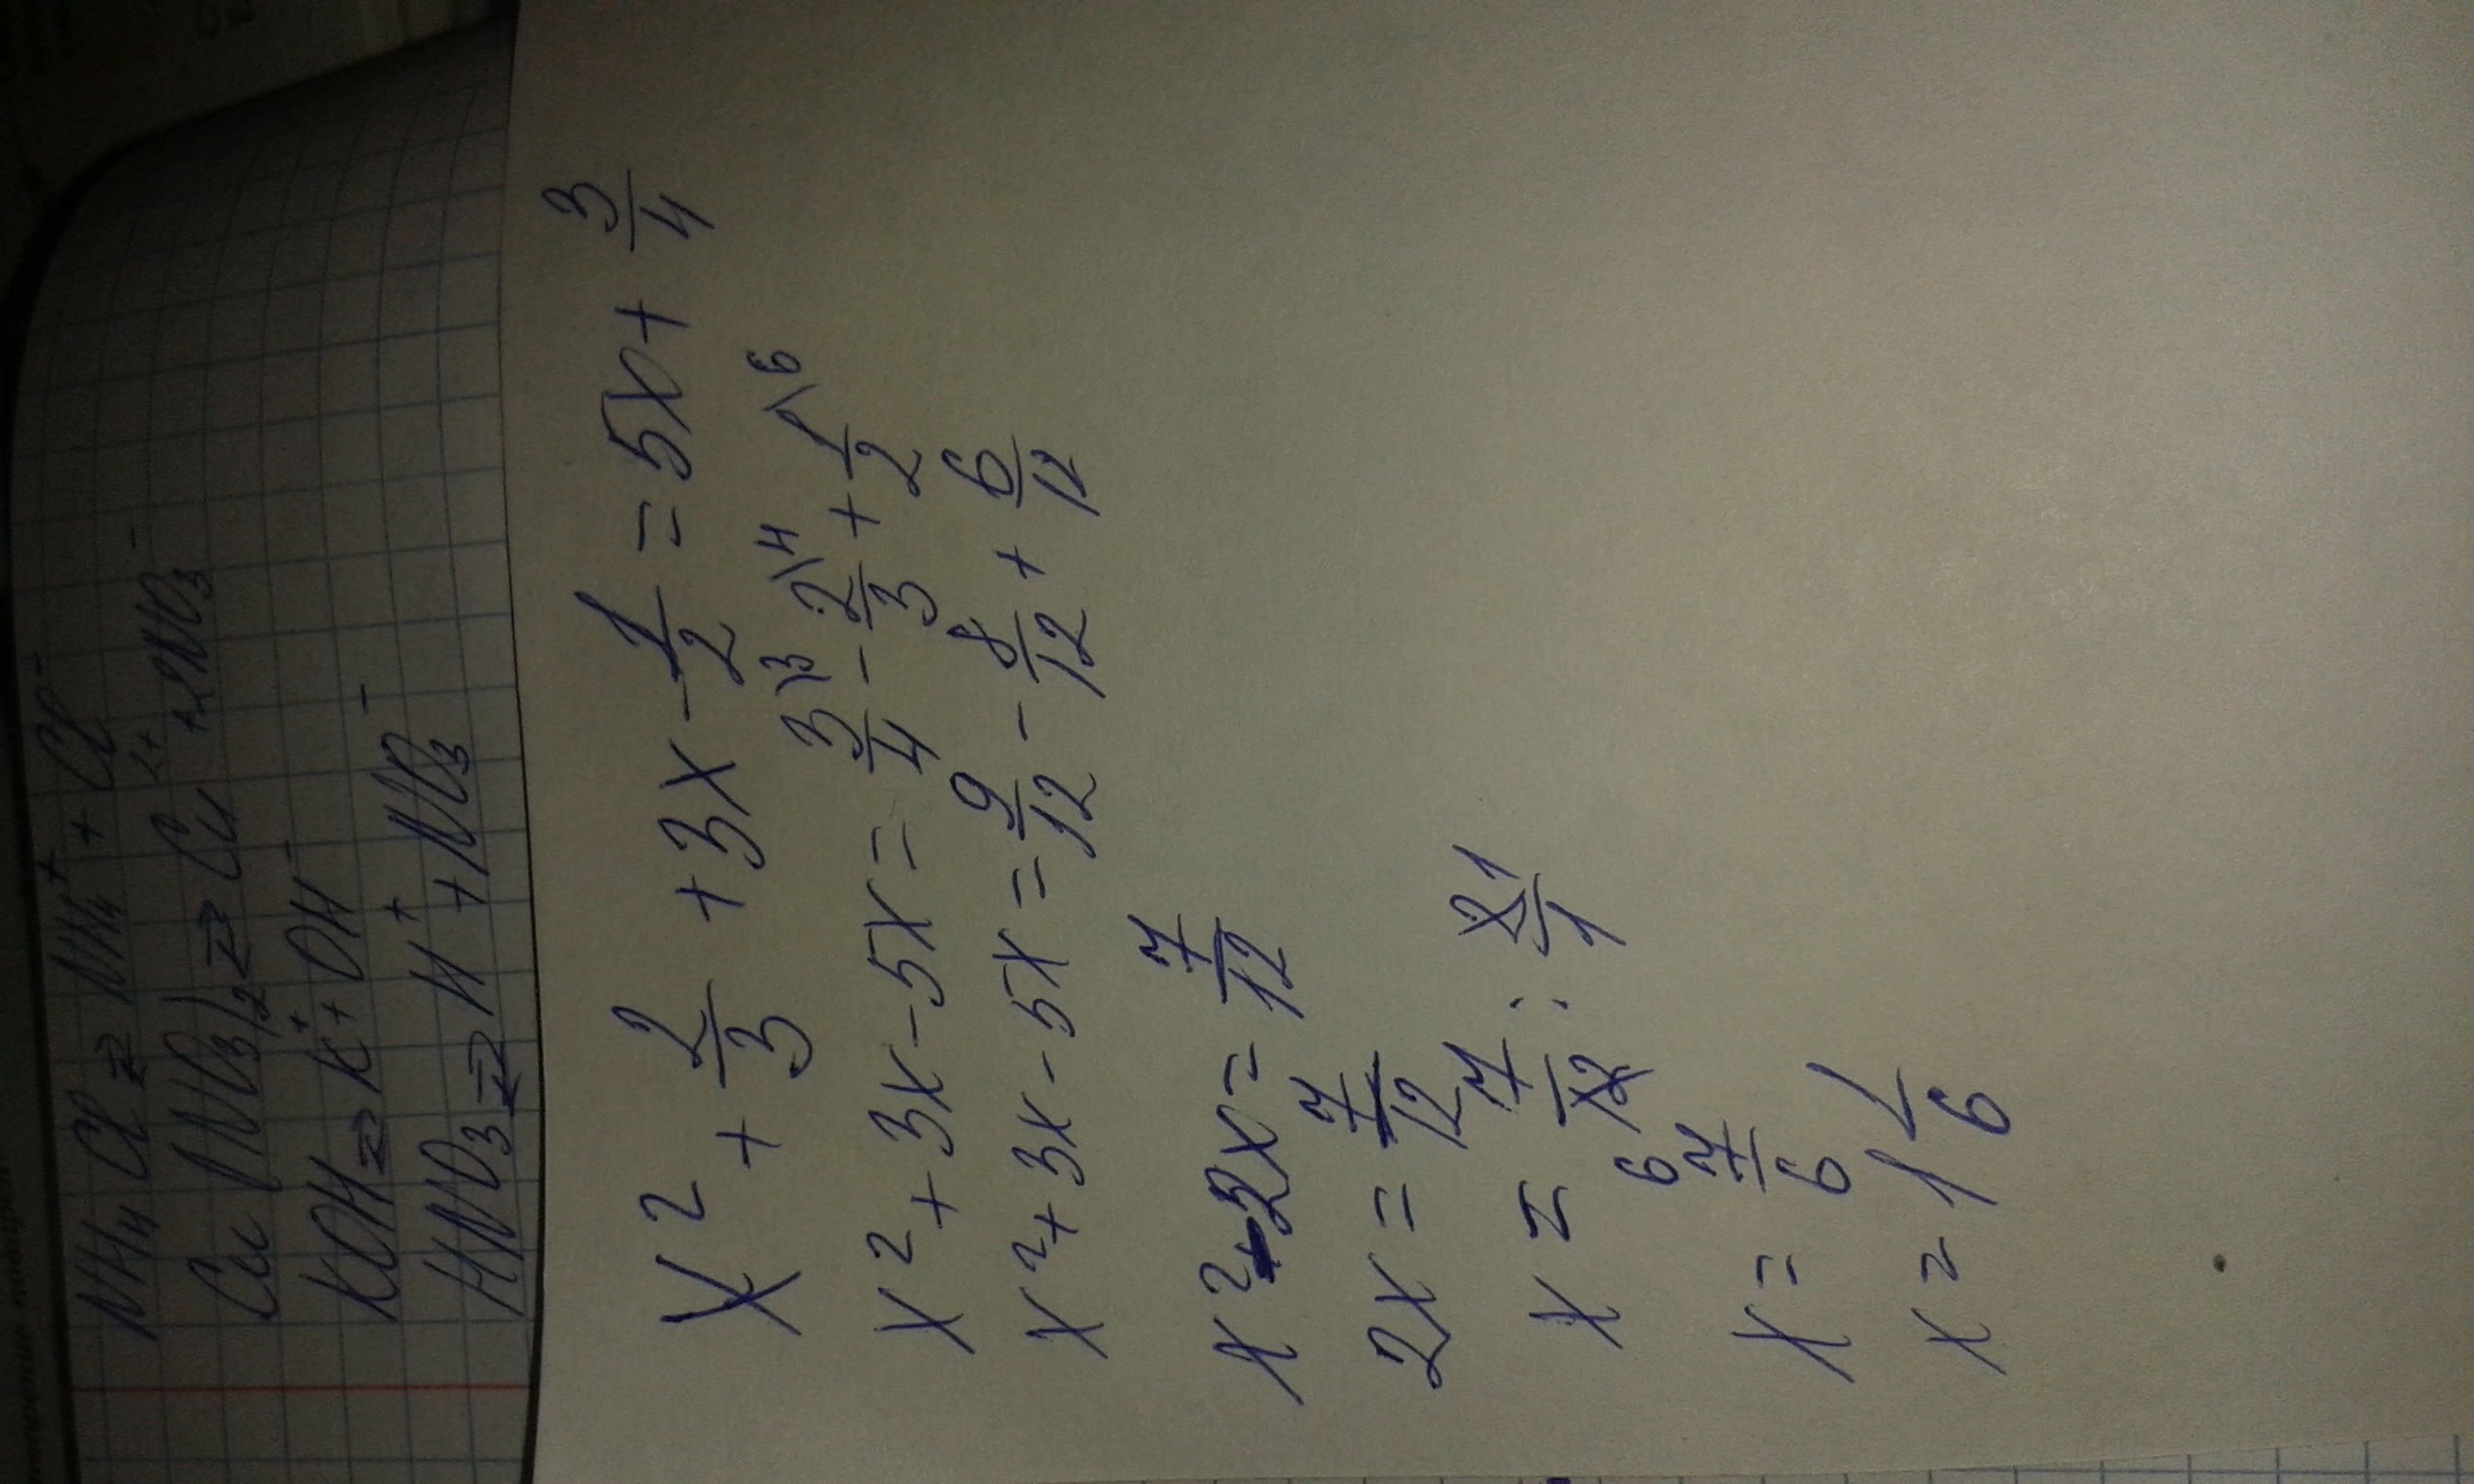 NH₄Cl ⇄ NH₄⁺ + Cl⁻
Cu(NO₃)₂ ⇄ Cu²⁺ + 2NO₃⁻
KOH ⇄ K⁺ + OH⁻
HNO₃ ⇄ H⁺ + NO₃⁻
x² + 2/3 + 3x - 1/2 = 5x + 3/4
x² + 3x - 5x = 3\3/4 - 2\4/3 + 1\6/2
x² + 3x - 5x = 9/12 - 8/12 + 6/12
x² - 2x = 7/12
2x = 7/12
x = 7/12 6 : 2 1/1
x = 7/6
x = 1 1/6